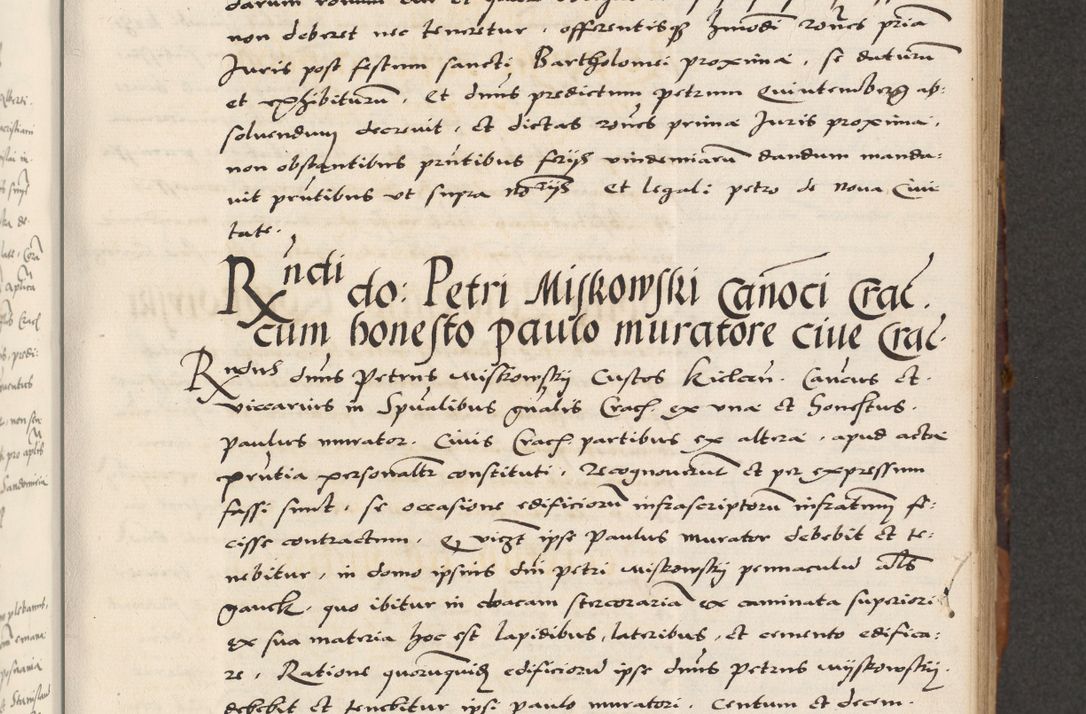 non deberet nec teneretur, offerentisq3 hmōdi rōnes pria
Juris post festum sancti Bartholomei proxima, se daturū
et exhibiturū, Et dnus predictum petrum Quintemberg ab:
soluendum decreuit, Et dictas rōnes prima Juris proxima,
non obstantibus pntibus ferijs vindemiarū dandum manda:
uit pntibus vt supra Norijs Et legali petro de Noua Ciui
tate.
Rndi do: Petri Miskowski Canoci Crac.
cum honesto paulo muratore ciue Crac.
Rndus dnus Petrus Miskowskij Custos Kielcen. Cancus Et.
viccarius in Spualibus gnalis Crac. ex una et honestus.
paulus murator. Ciuis Crac. partibus ex altera, apud acta
pentia personaltr constituti, Recognouerut et per expressum
fassi sunt, se occasione edificiorū infrascriptorū infratm fe:
cisse contractum. Q vizt ipse Paulus murator debebit et te:
nebitur, in domo ipsius dni petri Miskowskij pennaculū als
ganek. quo ibitur in cloacam stercorariā ex caminata superiori
ex sua materia hoc est lapidibus, lateribus, et cemento edifica:
re, Ratione quorumquidem edificiorū ipse dnus Petrus Myskowskij.
debebit et tenebitur ipsi paulo muratori. Centum et decem.